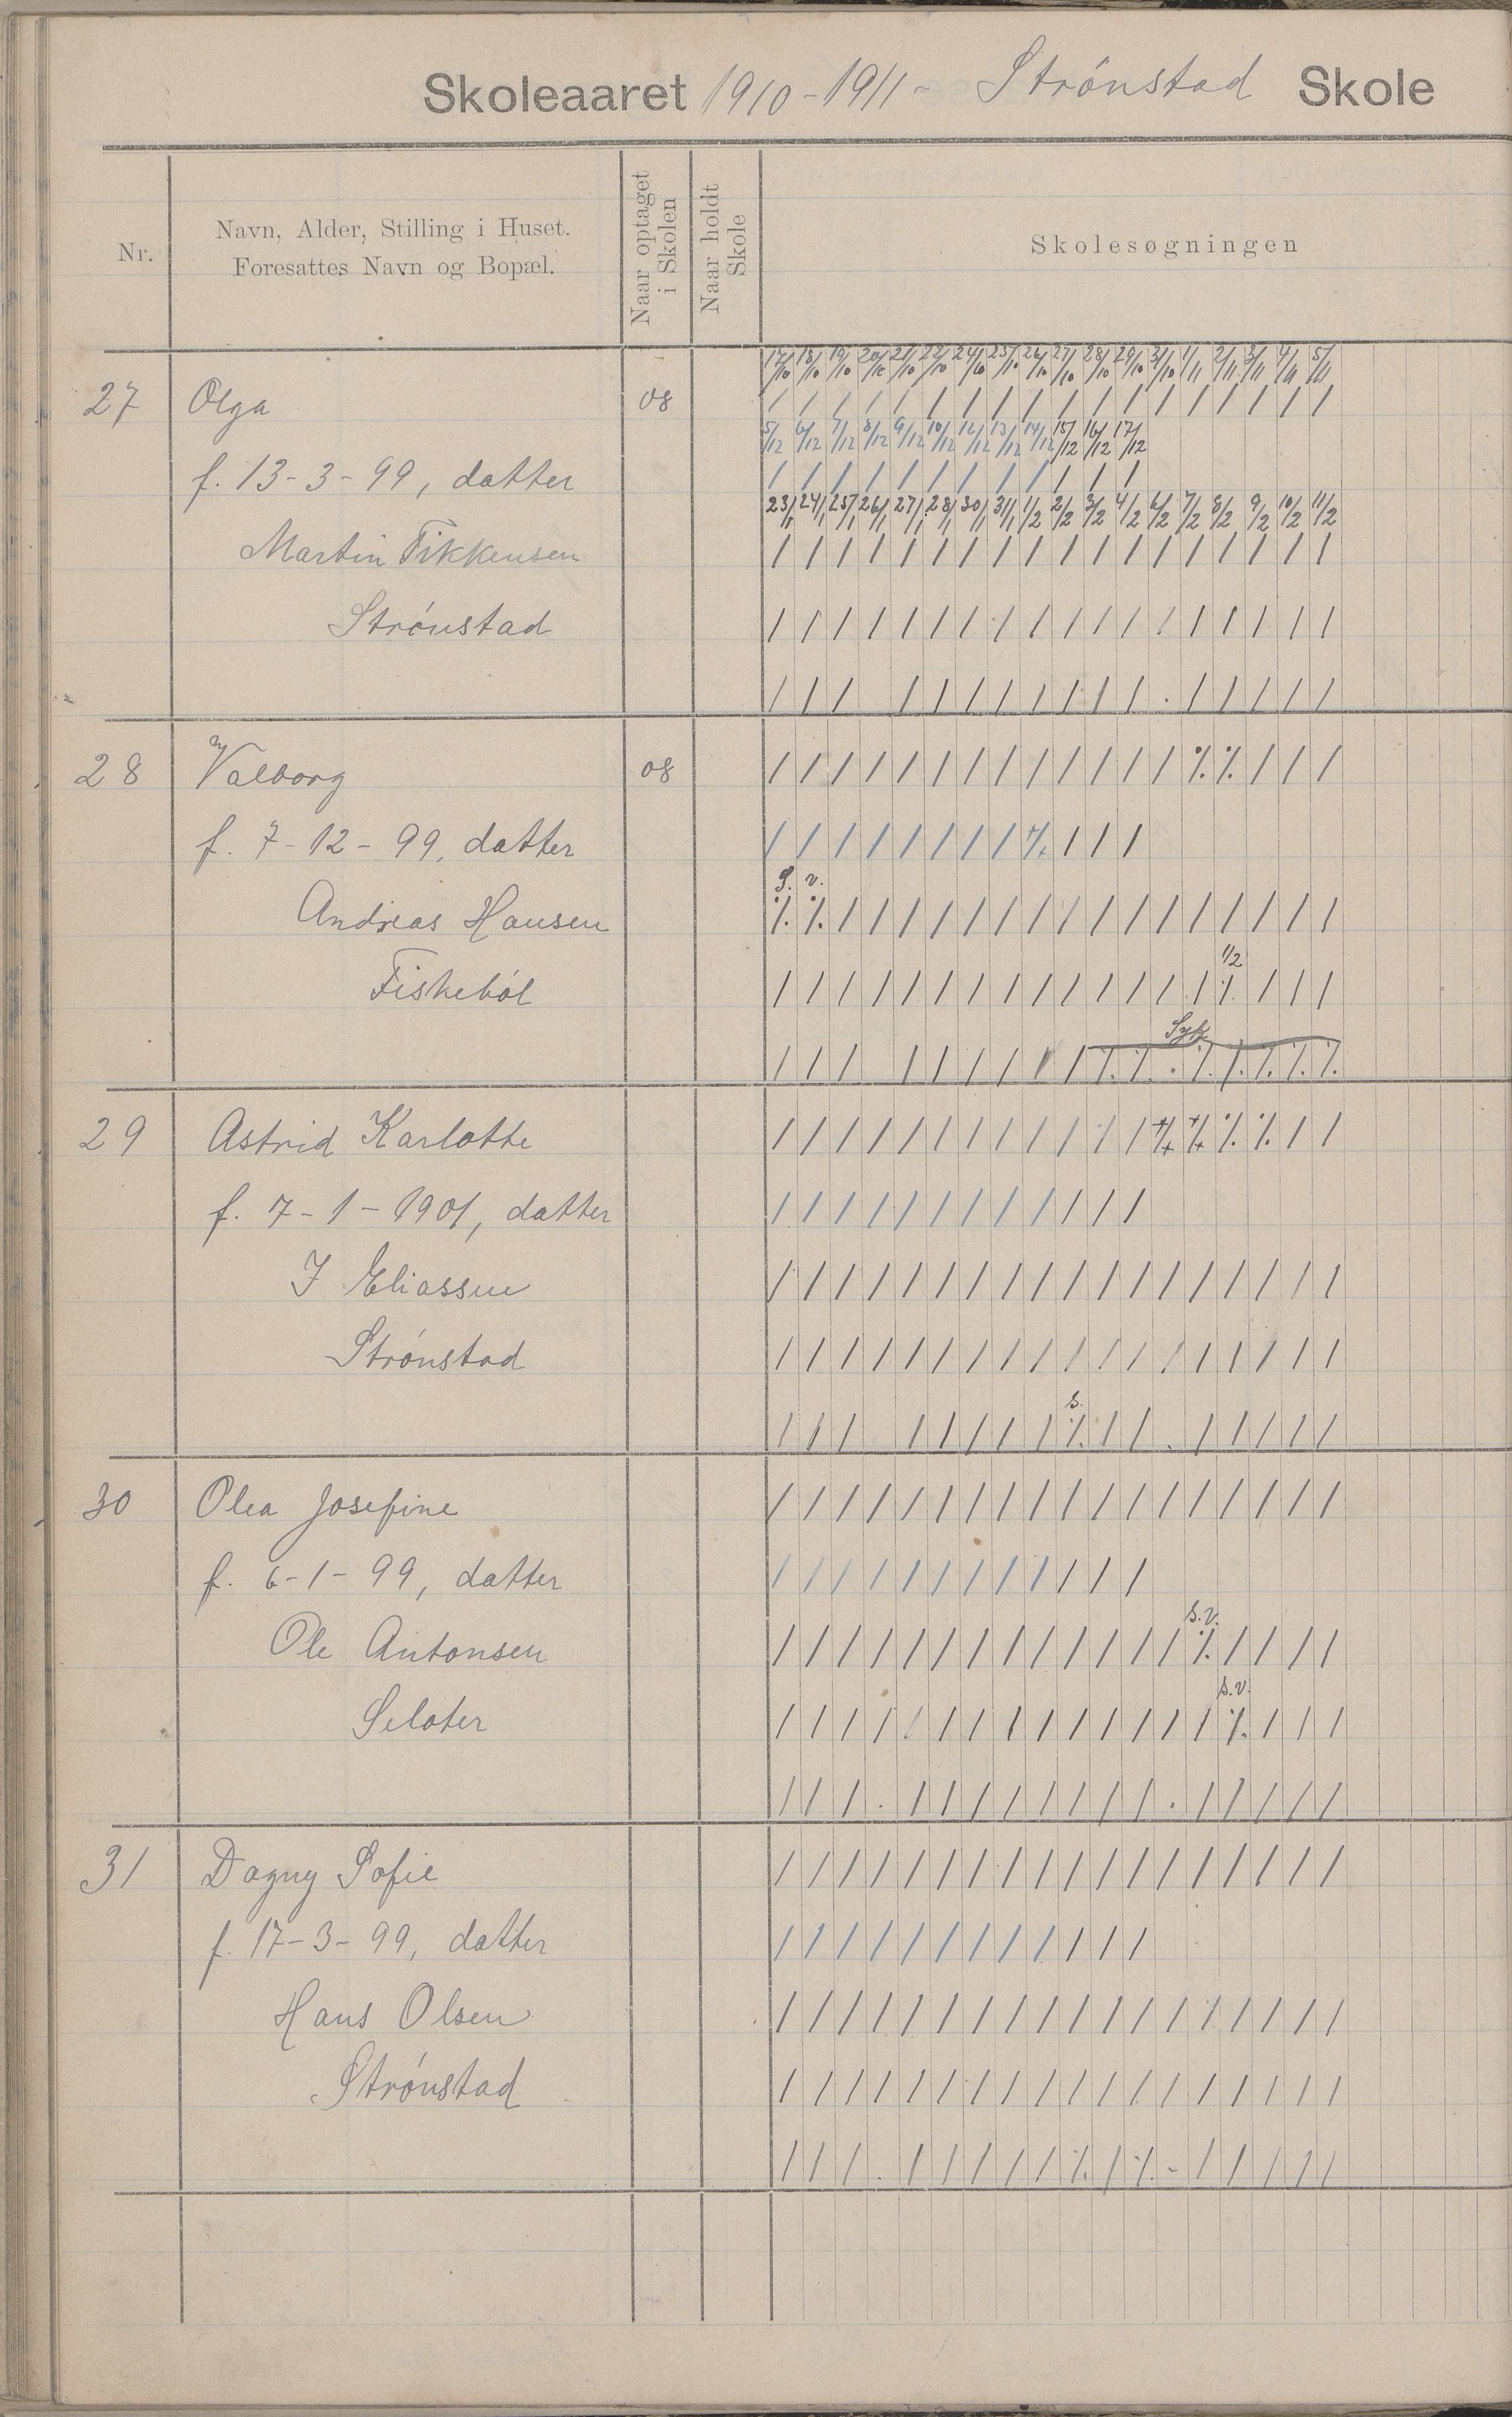 Skoleaaret 1910-1911- Strónstad Skole
Nr.
Navn, Alder, Stilling i Huset.
Foresattes Navn og Bopæl.
Naar optaget i Skolen
Naar holdt Skole
Skolesøgningen
17/10 18/10 19/10 20/10 21/10 22/10 24/10 25/10 26/10 27/10 28/10 29/10 31/10 1/11 2/11 3/11 4/11 5/11
27 Olga 08 / / / / / / / / / / / / / / / / / /
5/12 6/12 7/12 8/12 9/12 10/12 12/12 13/12 14/12 15/12 16/12 17/12
f. 13-3-99, datter / / / / / / / / / / / /
23/1 24/1 25/1 26/1 27/1 28/1 30/1 31/1 1/2 2/2 3/2 4/2 6/2 7/2 8/2 9/2 10/2 11/2
Martin Fikkensen / / / / / / / / / / / / / / / / / /
Strónstad / / / / / / / / / / / / / / / / / /
/ / / / / / / / / / / . / / / / /
28 Valborg 08 / / / / / / / / / / / / / % % / / /
f. 7-12-99, datter / / / / / / / / % / / /
S. v.
Andreas Hansen % % / / / / / / / / / / / / / / / /
1/2
Fiskeból / / / / / / / / / / / / / / / / / /
Syk
/ / / / / / / / / % % . % % % % %
29 Astrid Karlotte / / / / / / / / / / / / % % % % / /
f. 7-1-1901, datter / / / / / / / / / / / /
J Eliassen / / / / / / / / / / / / / / / / / /
Strónstad / / / / / / / / / / / / / / / / / /
s.
/ / / / / / / / % / / . / / / / /
30 Olea Josefine / / / / / / / / / / / / / / / / / /
f. 6-1-99, datter / / / / / / / / / / / /
s.v.
Ole Antonsen / / / / / / / / / / / / / % / / / /
s.v.
Selater / / / / / / / / / / / / / / % / / /
/ / / . / / / / / / / / . / / / / /
31 Dagny Sofie / / / / / / / / / / / / / / / / / /
f. 17-3-99, datter / / / / / / / / / / / /
Hans Olsen / / / / / / / / / / / / / / / / / /
Strónstad / / / / / / / / / / / / / / / / / /
/ / / . / / / / / % / % - / / / / /